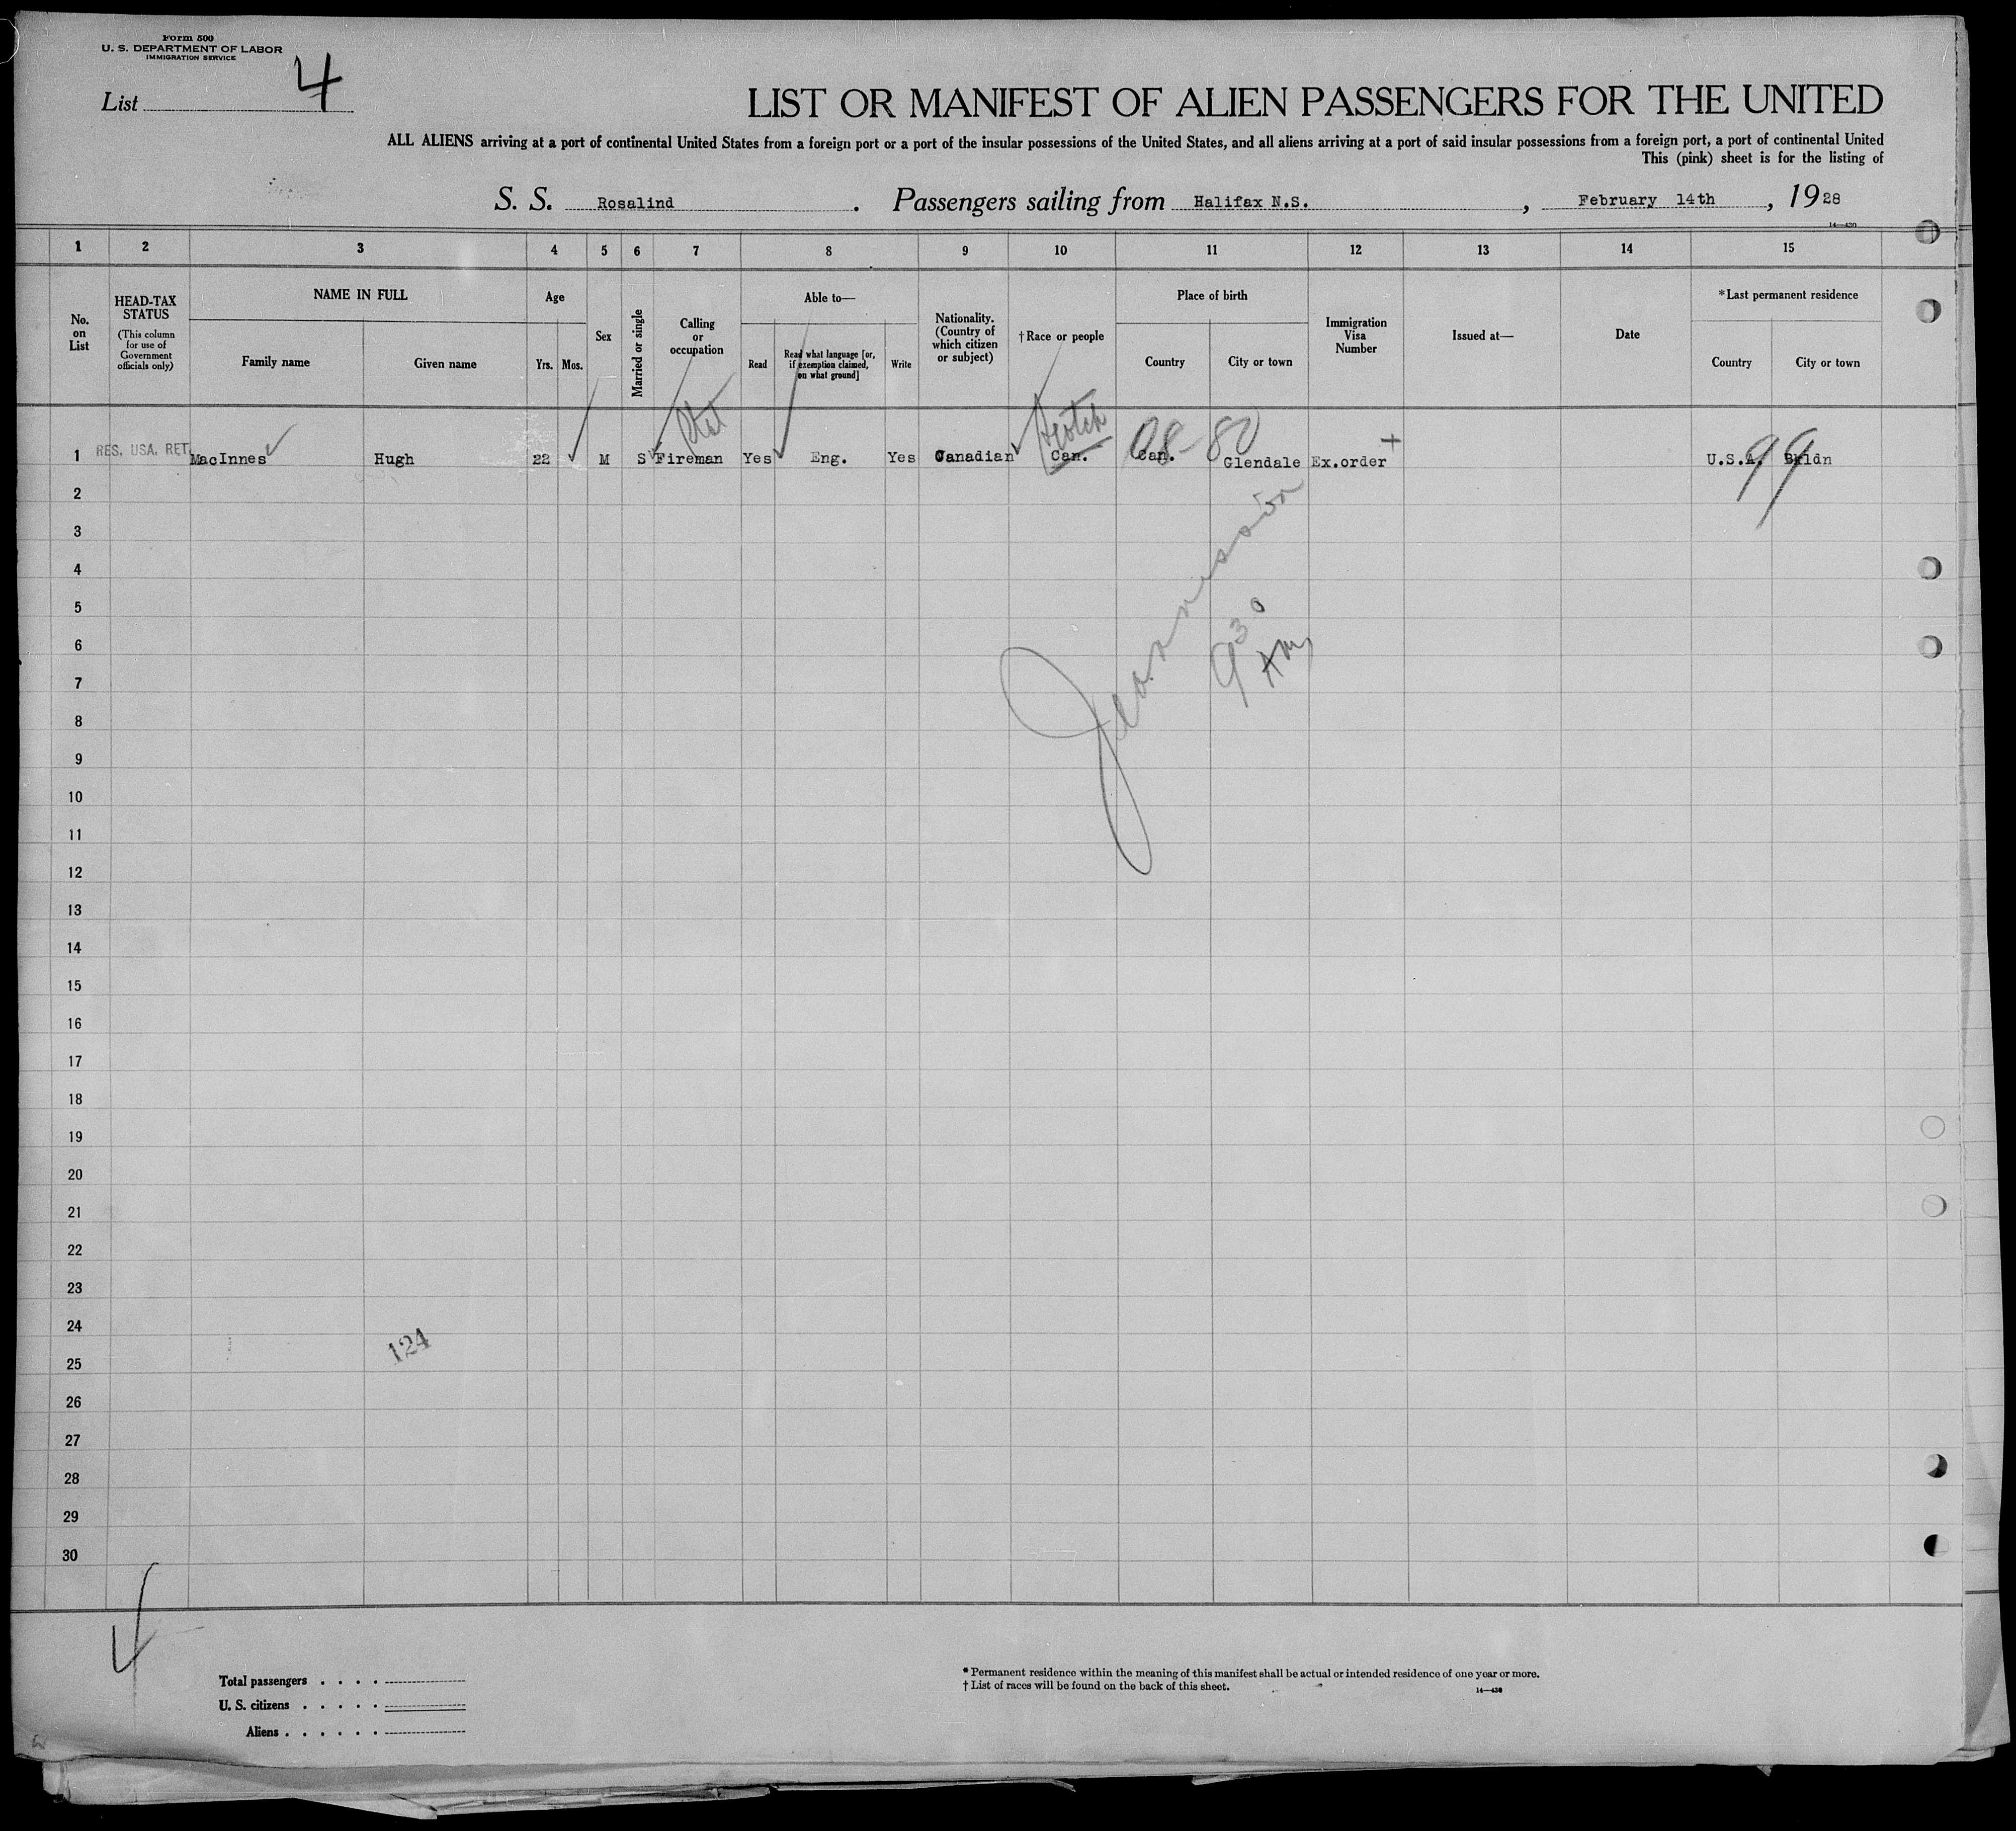 Form 500
U. S. DEPARTMENT OF LABOR
IMMIGRATION SERVICE
List 4
LIST OR MANIFEST OF ALIEN PASSENGERS FOR THE UNITED
ALL ALIENS arriving at a port of continental United States from a foreign port or a port of the insular possessions of the United States, and all aliens arriving at a port of said insular possessions from a foreign port, a port of continental United
This (pink) sheet is for the listing of
S. S. Rosalind . Passengers sailing from Halifax N.S. , February 14th , 1928
14—430
1 2 3 4 5 6 7 8 9 10 11 12 13 14 15
No. on List
HEAD-TAX STATUS
(This column for use of Government officials only)
NAME IN FULL
Family name Given name
Age
Yrs. Mos.
Sex
Married or single
Calling or occupation
Able to—
Read
Read what language [or, if exemption claimed, on what ground]
Write
Nationality. (Country of which citizen or subject)
†Race or people
Place of birth
Country City or town
Immigration Visa Number
Issued at—
Date
*Last permanent residence
Country City or town
Scotch 08-80 99
1 RES. USA. RET. MacInnes Hugh 22 M S Fireman Yes Eng. Yes Canadian Can. Can. Glendale Ex.order + U.S.A. Bkldn
2
3
4
5
6
7
8
9
10
11
12
13
14
15
16
17
18
19
20
21
22
23
24
25
26
27
28
29
30
9 30 AM
124
4
Total passengers . . . .
U. S. citizens . . . . .
Aliens . . . . . .
* Permanent residence within the meaning of this manifest shall be actual or intended residence of one year or more.
† List of races will be found on the back of this sheet.
14—430